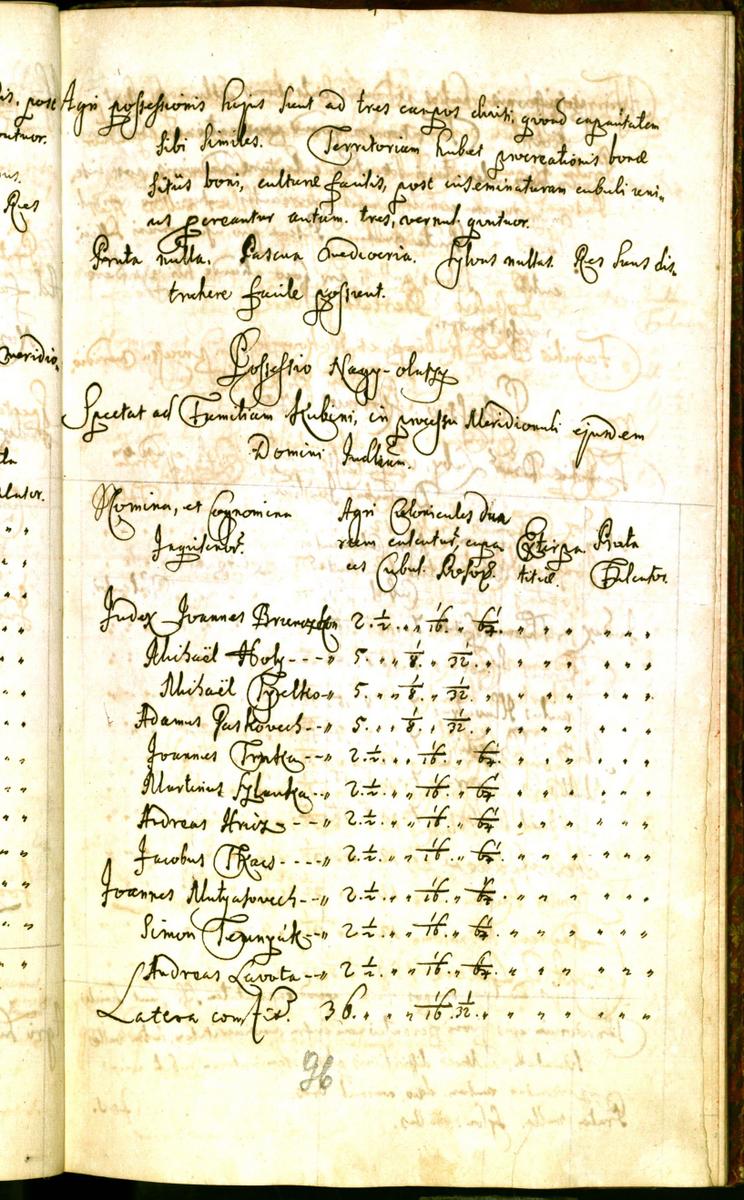 Agri possessionis hujus sunt ad tres campos divisi, quoad capacitatem
sibi similes. Territorium habet procreationis bonæ
sitûs boni, culturæ facilis, post inseminaturam cubuli uni„
us pereantur autum. tres, vernal. quatuor.
Prata nulla. Pascua mediocria. Sylvas nullas. Res suas dis„
trahere facile possent.
Possessio Nagy-olaszy
Spectat ad Familiam Kubini, in processu Meridionali ejusdem
Domini Judlium.
Nomina, et Cognomina
Inquilinor.
Agri Colonicales dua
rum culturar. capa
ces Cubul.
Extirpa
titiæ.
Prata
Falcator.
Judex Joannes 2. 1/2 „ „ 1/16 „ 1/64 „ „ „ „ „ „
Michaël Holy - - - „ 5. „ „ 1/8 „ 1/32 „ „ „ „ „ „
Michaël „ 5. „ „ 1/8 „ 1/32 „ „ „ „ „ „
Adamus Paskovech - - „ 5. „ „ 1/8 „ 1/32 „ „ „ „ „ „
Joannes Trnka - - „ 2. 1/2 „ „ 1/16 „ 1/64 „ „ „ „ „ „
Martinus - - „ 2. 1/2 „ „ 1/16 „ 1/64 „ „ „ „ „ „
Andreas Hriz - - „ 2. 1/2 „ „ 1/16 „ 1/64 „ „ „ „ „ „
Jacobus Tkacs - - - - „ 2. 1/2 „ „ 1/16 „ 1/64 „ „ „ „ „ „
Joannes Mutyasovech - - „ 2. 1/2 „ „ 1/16 „ 1/64 „ „ „ „ „ „
Simon - - „ 2. 1/2 „ „ 1/16 „ 1/64 „ „ „ „ „ „
Andreas Lavota - - „ 2. 1/2 „ „ 1/16 „ 1/64 „ „ „ „ „ „
Latera 36. „ „ „ 1/16. 1/32. „ „ „ „ „ „
96